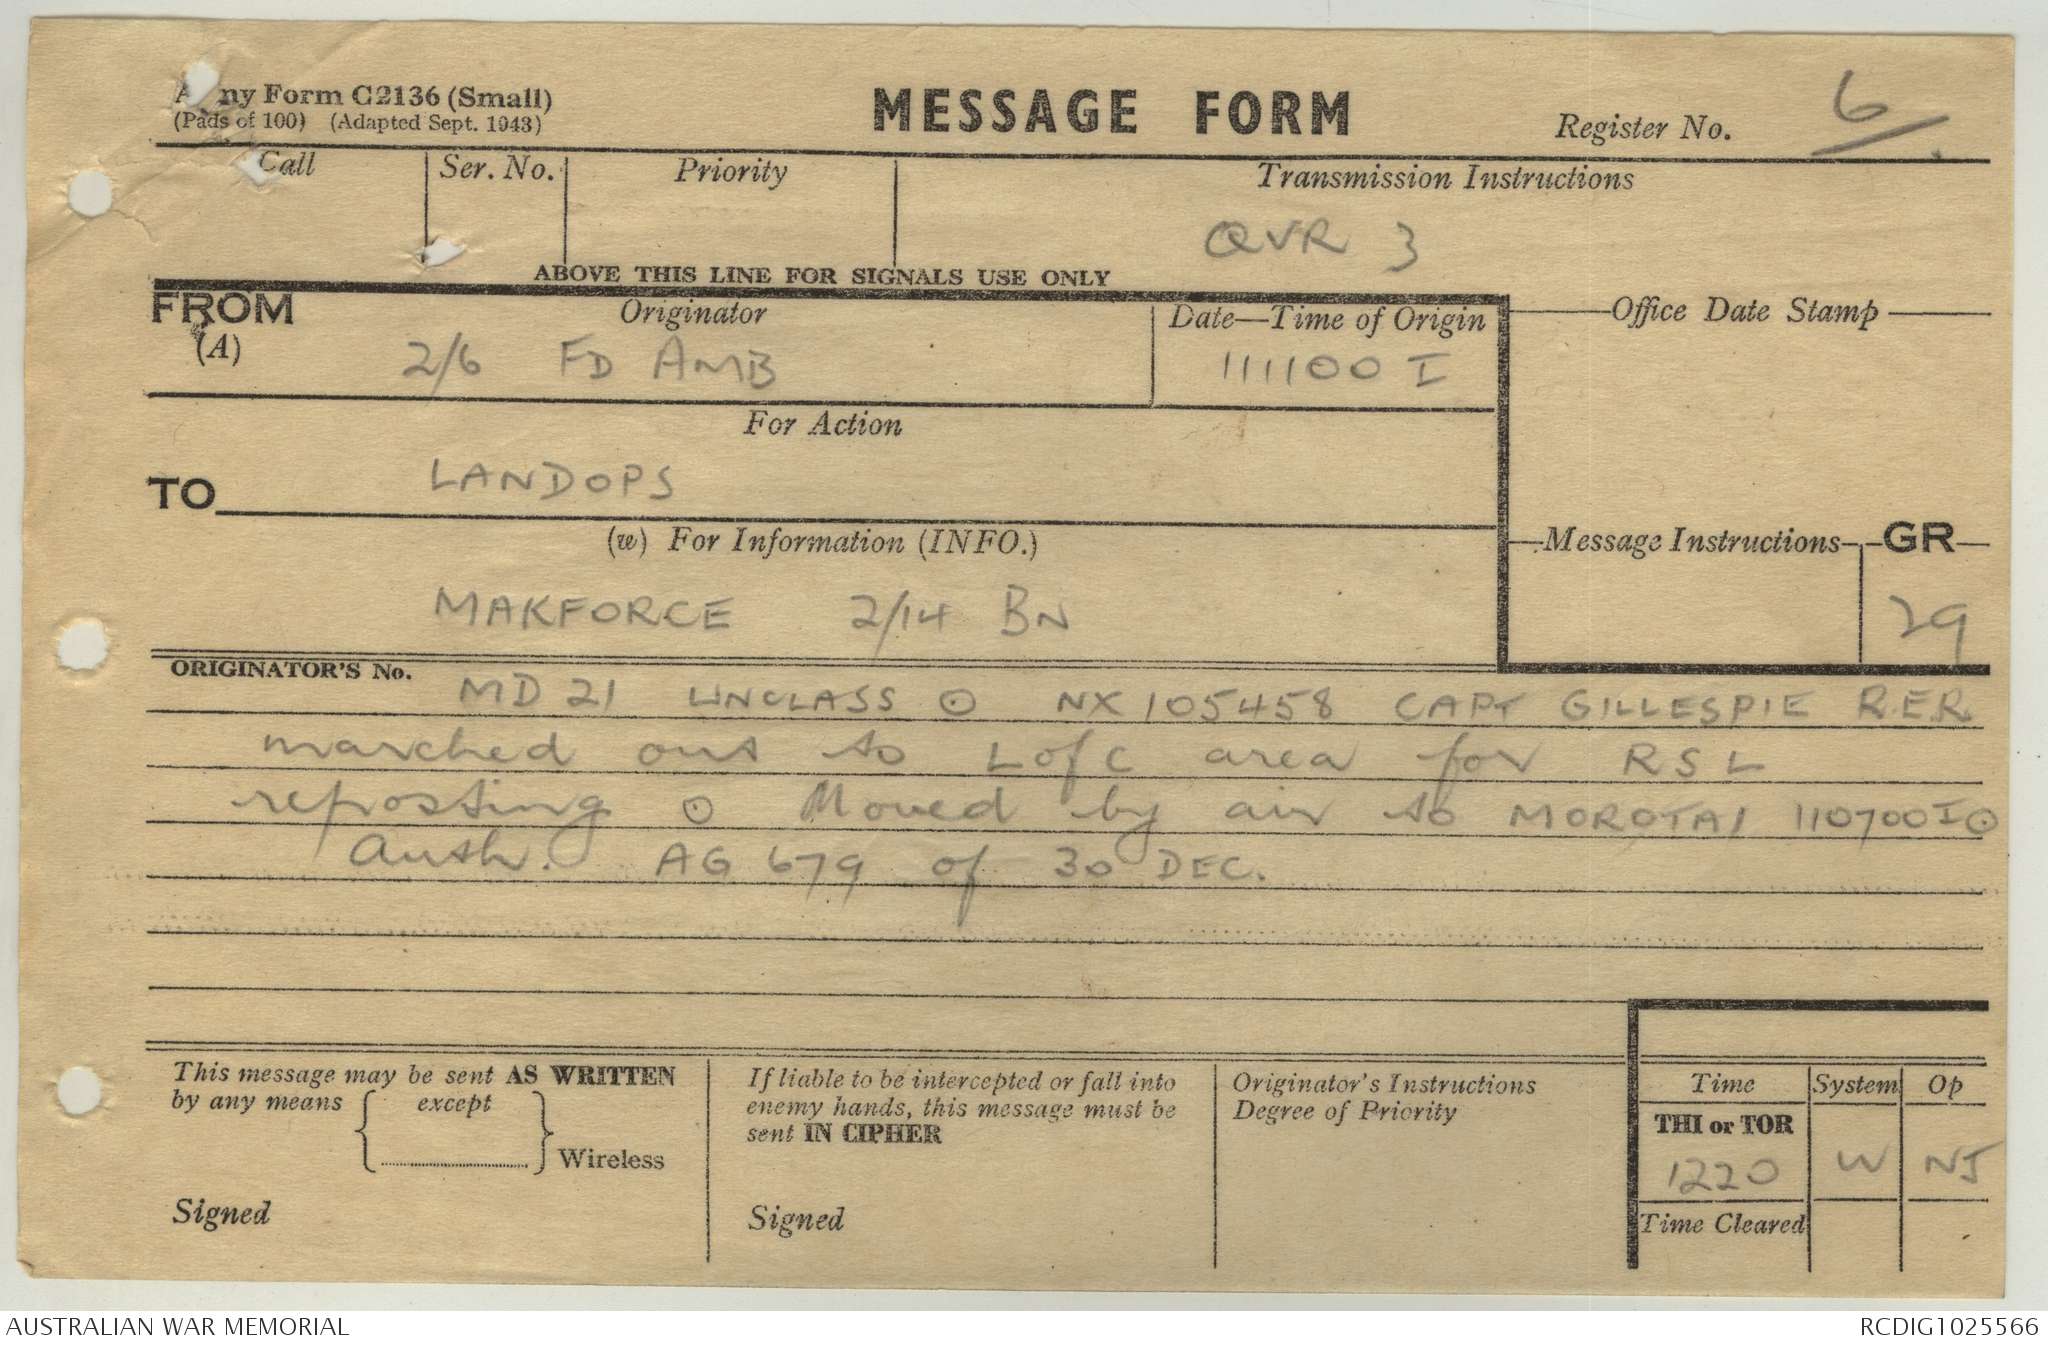 Army Form C2136 (Small)
(Pads of 100) (Adapted Sept. 1943)
MESSAGE FORM
Register No. 6/.
Call
Ser. No.
Priority
Transmission Instructions
QVR 3
ABOVE THIS LINE FOR SIGNALS USE ONLY
FROM
(A)
Originator
2/6 FD AMB
Date—Time of Origin
111100 I
Office Date Stamp
For Action
TO
LANDOPS
(w) For Information (INFO.)
MAKFORCE 2/14 BN
Message Instructions
GR
29
ORIGINATOR'S No.
MD 21 UNCLASS ⊙ NX 105458 CAPT GILLESPIE R.E.R.
marched out to L of C area for RSL
reposting ⊙ Moved by air to MOROTAI 110700I ⊙
Auth. AG 679 of 30 DEC.
This message may be sent AS WRITTEN
by any means { except
} Wireless
Signed
If liable to be intercepted or fall into
enemy hands, this message must be
sent IN CIPHER
Signed
Originator's Instructions
Degree of Priority
Time System Op
THI or TOR
1220 W NJ
Time Cleared
AUSTRALIAN WAR MEMORIAL
RCDIG1025566